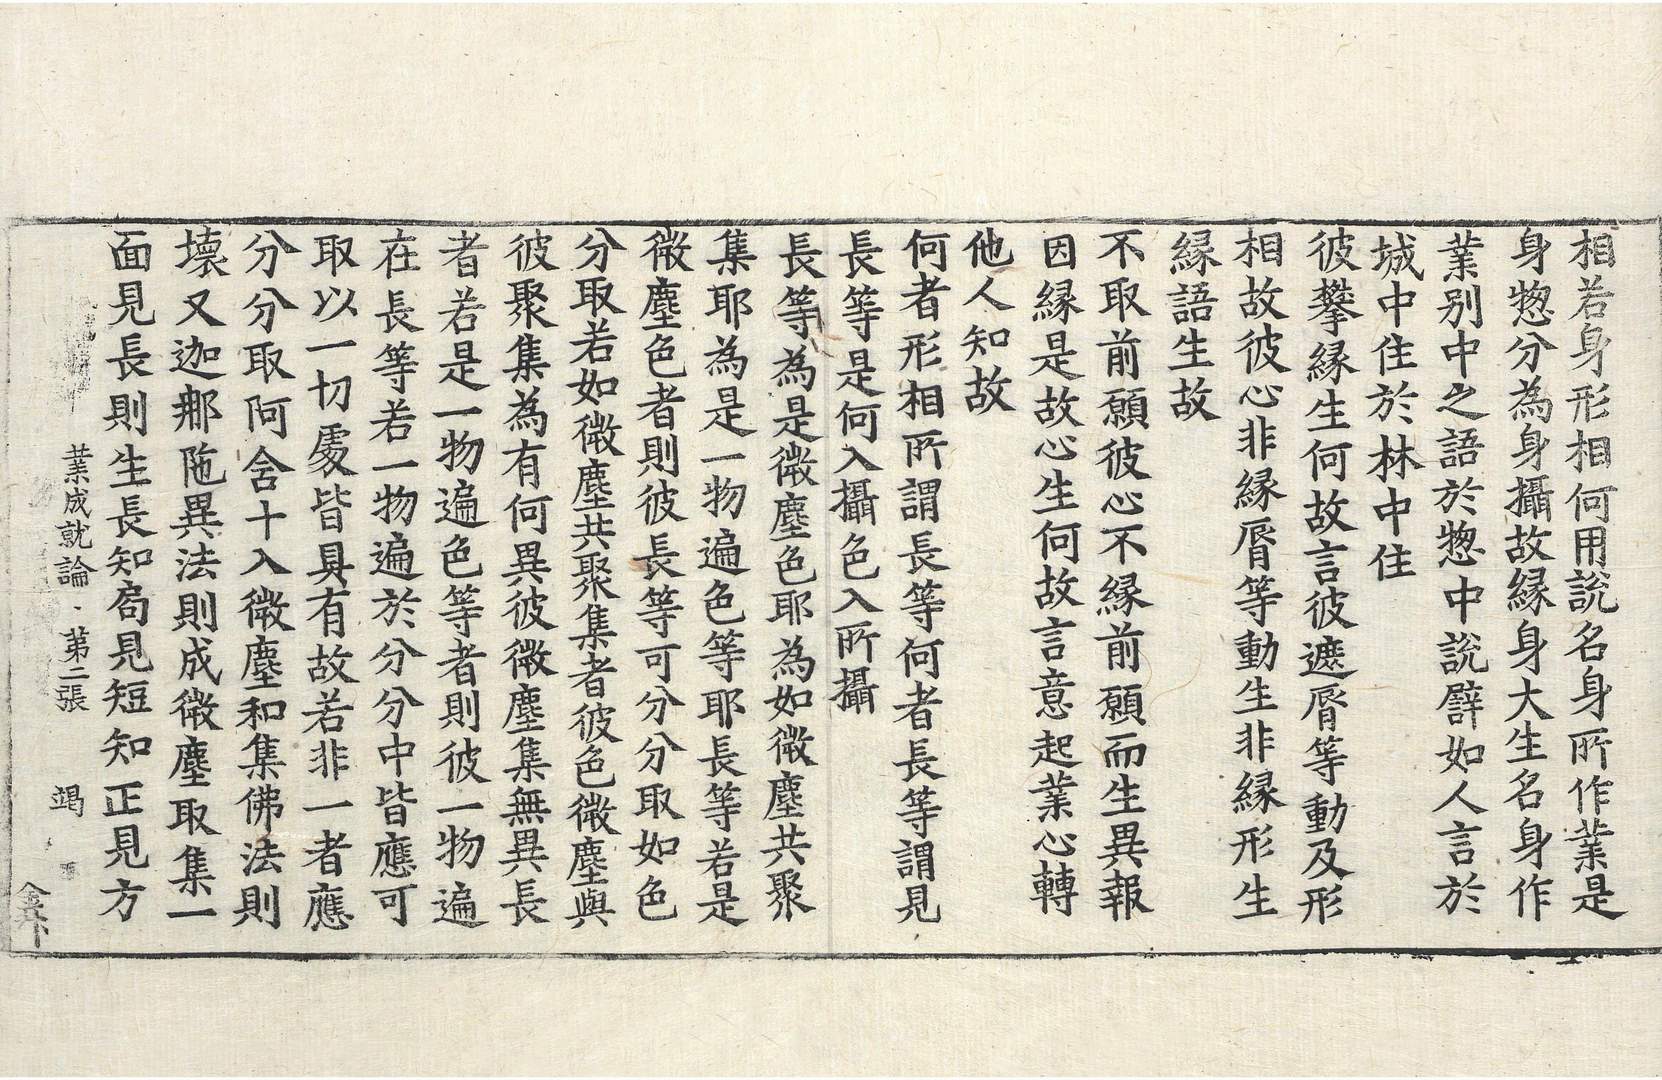 相若身形相何用說名身所作業是
身惣分為身攝故緣身大生名身作
業别中之語於惣中說譬如人言於
城中住於林中住
彼攀緣生何故言彼遮脣等動及形
相故彼心非緣脣等動生非緣形生
緣語生故
不取前願彼心不緣前願而生異報
因緣是故心生何故言意起業心轉
他人知故
何者形相所謂長等何者長等謂見
長等是何入攝色入所攝
長等為是微塵色耶為如微塵共聚
集耶為是一物遍色等耶長等若是
微塵色者則彼長等可分分取如色
分取若如微塵共聚集者彼色微塵與
彼聚集為有何異彼微塵集無異長
者若是一物遍色等者則彼一物遍
在長等若一物遍於分分中皆應可
取以一切處皆具有故若非一者應
分分取阿含十入微塵和集佛法則
壞又迦那陁異法則成微塵取集一
面見長則生長知局見短知正見方
業成就論 第二張 竭